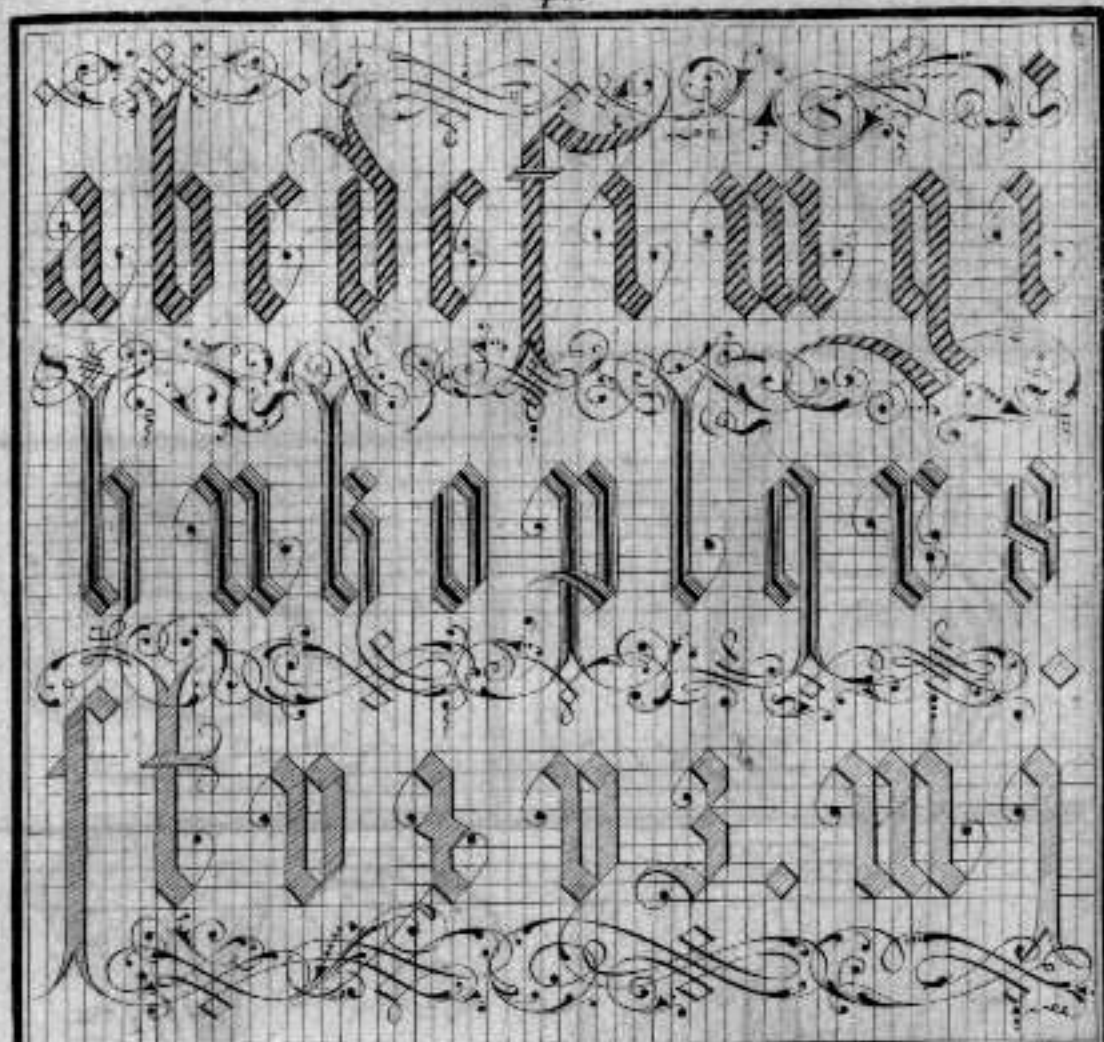 a b c d e f i m g i
h n k o p l q r s
ſ t v x y z . m j